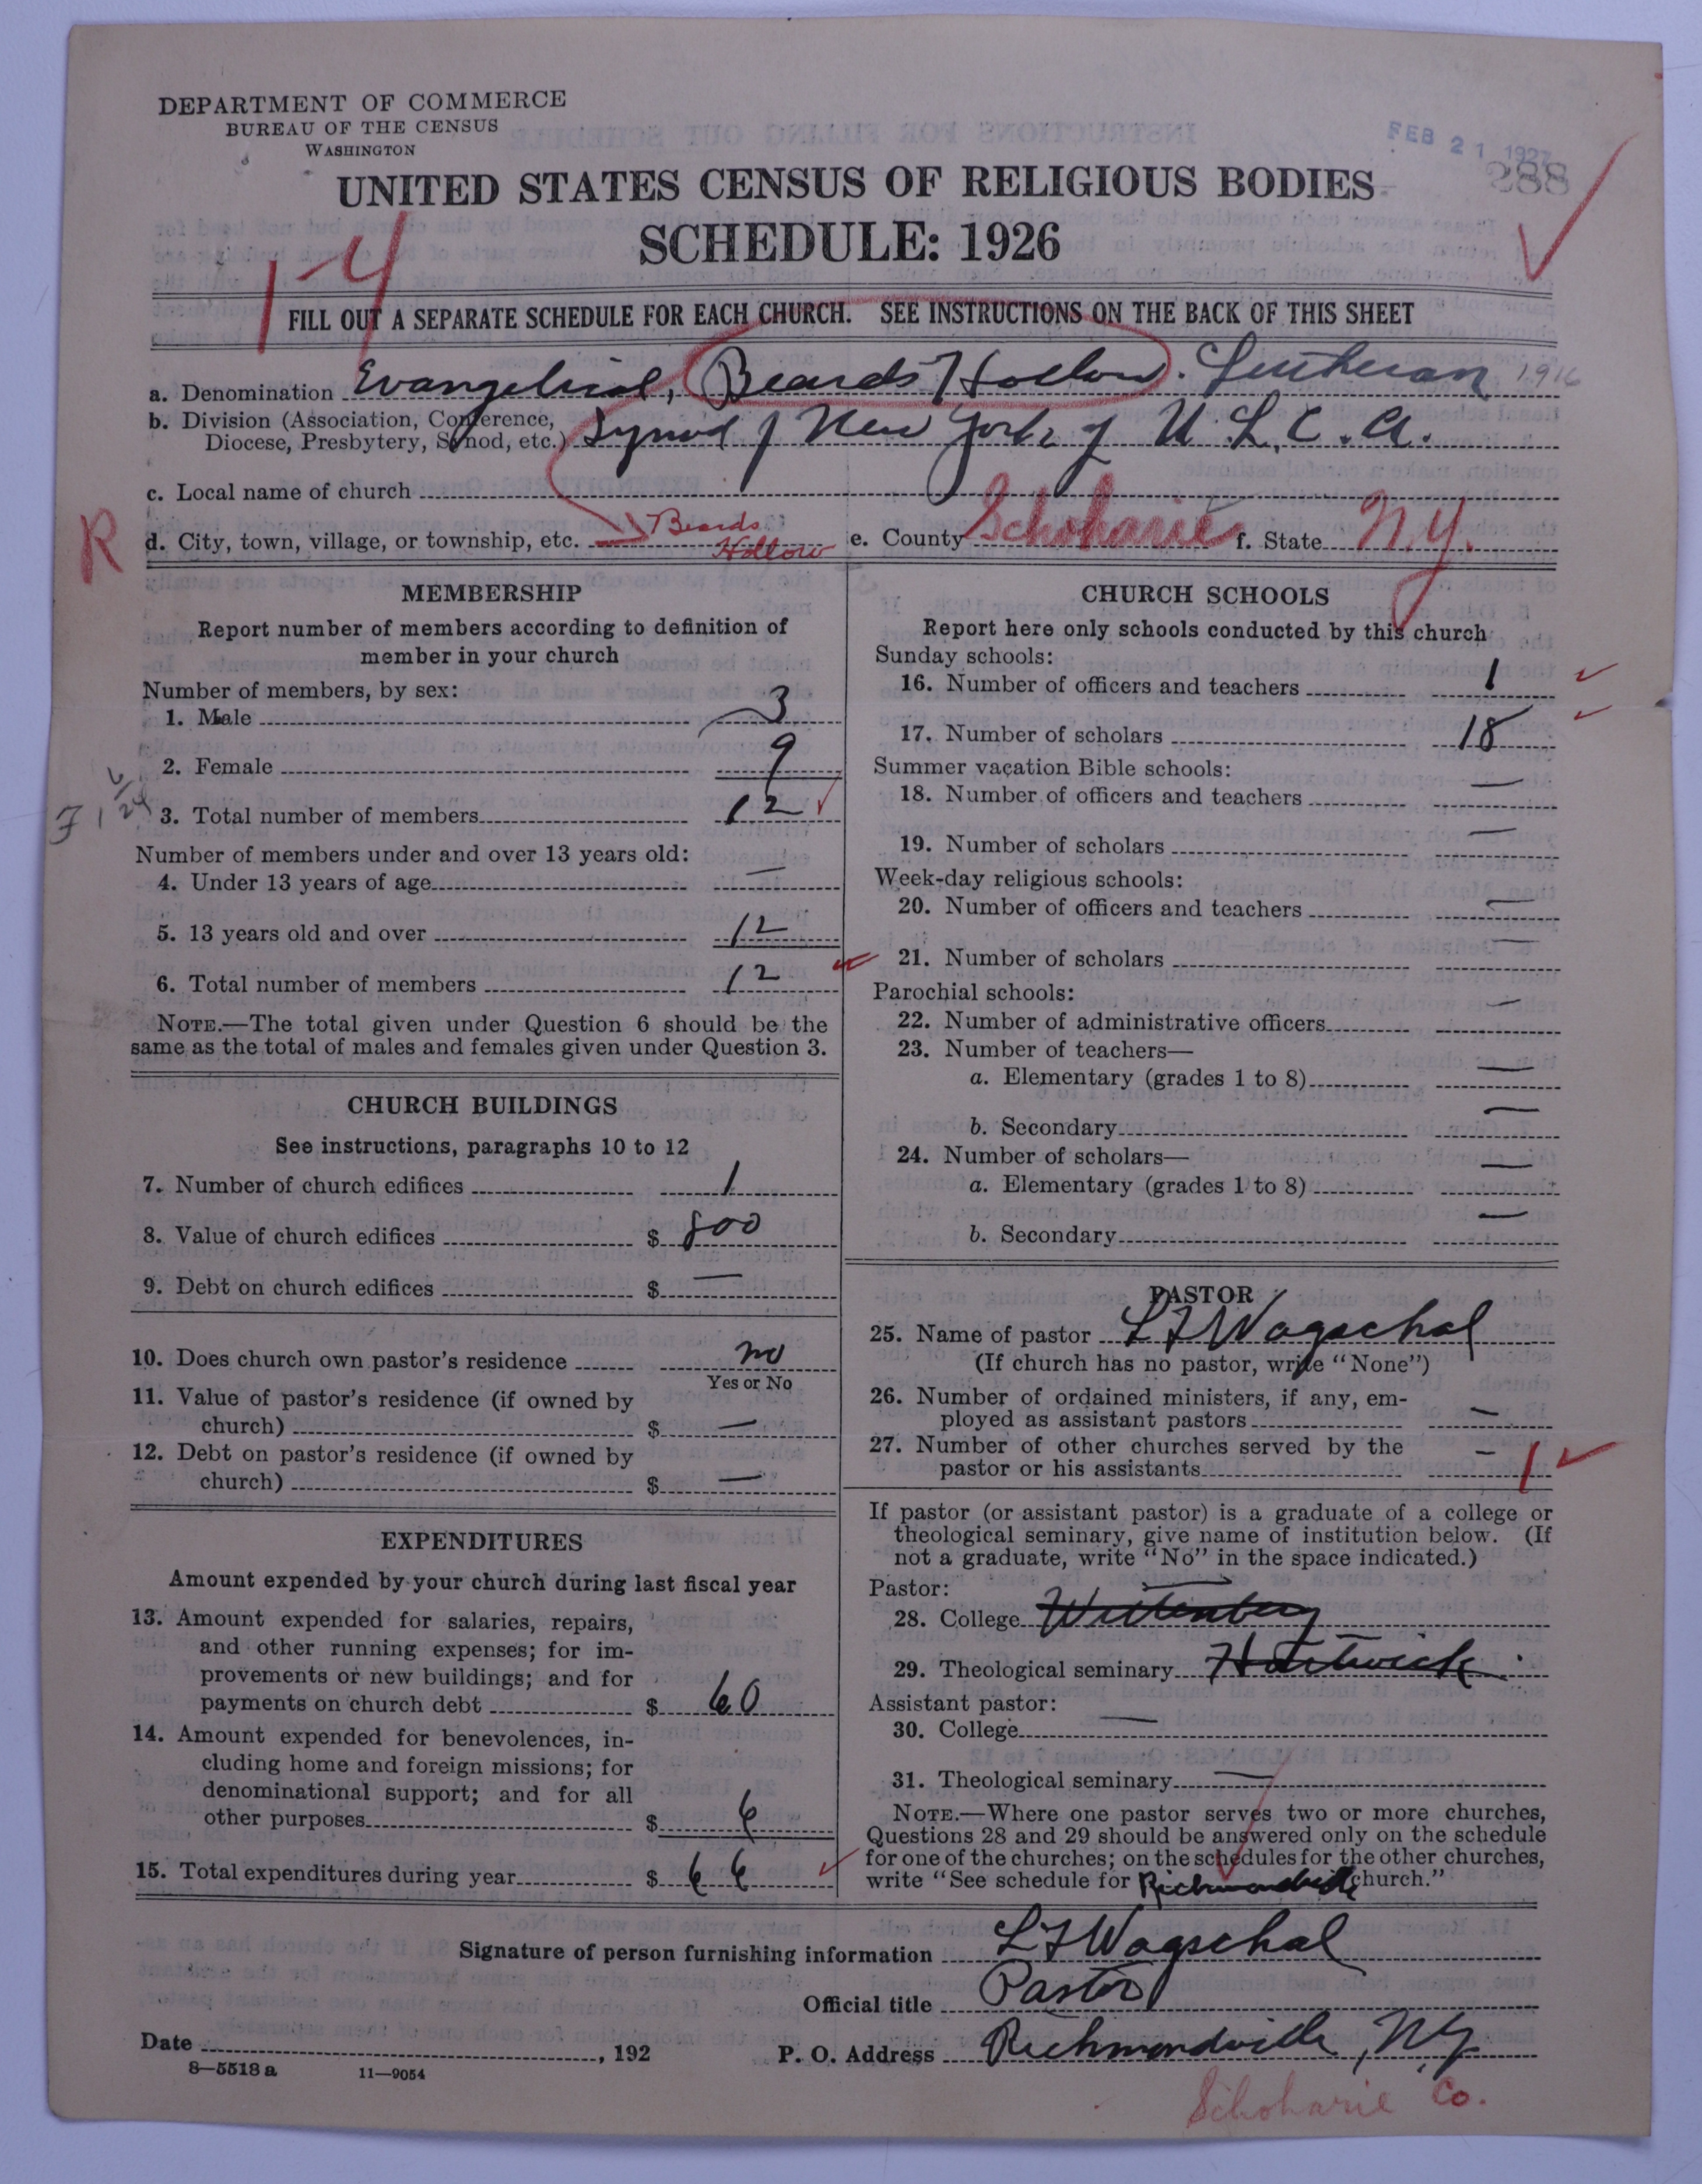 DEPARTMENT OF COMMERCE
BUREAU OF THE CENSUS
WASHINGTON
FEB 21 1927
288
UNITED STATES CENSUS OF RELIGIOUS BODIES
SCHEDULE: 1926
1-4
FILL OUT A SEPARATE SCHEDULE FOR EACH CHURCH. SEE INSTRUCTIONS ON THE BACK OF THIS SHEET
a. Denomination Evangelical, Beards Hollow. Lutheran 1916
b. Division (Association, Conference,
Diocese, Presbytery, Synod, etc.) Synod of New York of U. L. C. A.
c. Local name of church
R
d. City, town, village, or township, etc. Beards Hollow e. County Schoharie f. State N.Y.
MEMBERSHIP
Report number of members according to definition of
member in your church
Number of members, by sex:
1. Male 3
2. Female 9
3. Total number of members 12
Number of members under and over 13 years old:
4. Under 13 years of age —
5. 13 years old and over 12
6. Total number of members 12
NOTE.—The total given under Question 6 should be the
same as the total of males and females given under Question 3.
CHURCH BUILDINGS
See instructions, paragraphs 10 to 12
7. Number of church edifices 1
8. Value of church edifices $ 800
9. Debt on church edifices $ —
10. Does church own pastor's residence no
Yes or No
11. Value of pastor's residence (if owned by
church) $ —
12. Debt on pastor's residence (if owned by
church) $ —
EXPENDITURES
Amount expended by your church during last fiscal year
13. Amount expended for salaries, repairs,
and other running expenses; for im-
provements or new buildings; and for
payments on church debt $ 60
14. Amount expended for benevolences, in-
cluding home and foreign missions; for
denominational support; and for all
other purposes $ 6
15. Total expenditures during year $ 66
CHURCH SCHOOLS
Report here only schools conducted by this church
Sunday schools:
16. Number of officers and teachers 1
17. Number of scholars 18
Summer vacation Bible schools:
18. Number of officers and teachers —
19. Number of scholars —
Week-day religious schools:
20. Number of officers and teachers —
21. Number of scholars —
Parochial schools:
22. Number of administrative officers —
23. Number of teachers—
a. Elementary (grades 1 to 8) —
b. Secondary —
24. Number of scholars—
a. Elementary (grades 1 to 8) —
b. Secondary —
PASTOR
25. Name of pastor L F Wagschal
(If church has no pastor, write "None")
26. Number of ordained ministers, if any, em-
ployed as assistant pastors —
27. Number of other churches served by the
pastor or his assistants — 1
If pastor (or assistant pastor) is a graduate of a college or
theological seminary, give name of institution below. (If
not a graduate, write "No" in the space indicated.)
Pastor:
28. College Wittenberg
29. Theological seminary Hartwick
Assistant pastor:
30. College —
31. Theological seminary —
NOTE.—Where one pastor serves two or more churches,
Questions 28 and 29 should be answered only on the schedule
for one of the churches; on the schedules for the other churches,
write "See schedule for Richmondville church."
Signature of person furnishing information L F Wagschal
Official title Pastor
Date , 192
P. O. Address Richmondville, N.Y.
8—5518 a 11—9054
Schoharie Co.